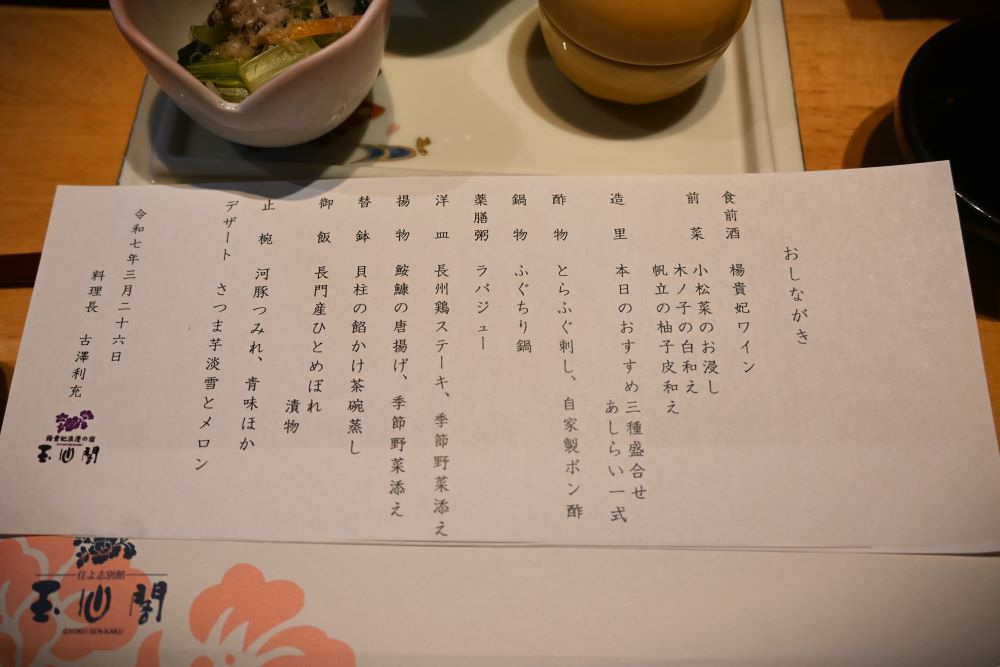 おしながき
食前酒 楊貴妃ワイン
前菜 小松菜のお浸し
木ノ子の白和え
帆立の柚子皮和え
造里 本日のおすすめ三種盛合せ
あしらい一式
酢物 とらふぐ刺し、自家製ポン酢
鍋物 ふぐちり鍋
薬膳粥 ラバジュー
洋皿 長州鶏ステーキ、季節野菜添え
揚物 鮟鱇の唐揚げ、季節野菜添え
替鉢 貝柱の餡かけ茶碗蒸し
御飯 長門産ひとめぼれ
漬物
止椀 河豚つみれ、青味ほか
デザート さつま芋淡雪とメロン
令和七年三月二十六日
料理長 古澤利充
楊貴妃浪漫の宿
玉仙閣
住よ志別館
玉仙閣
GYOKU-SEN-KAKU